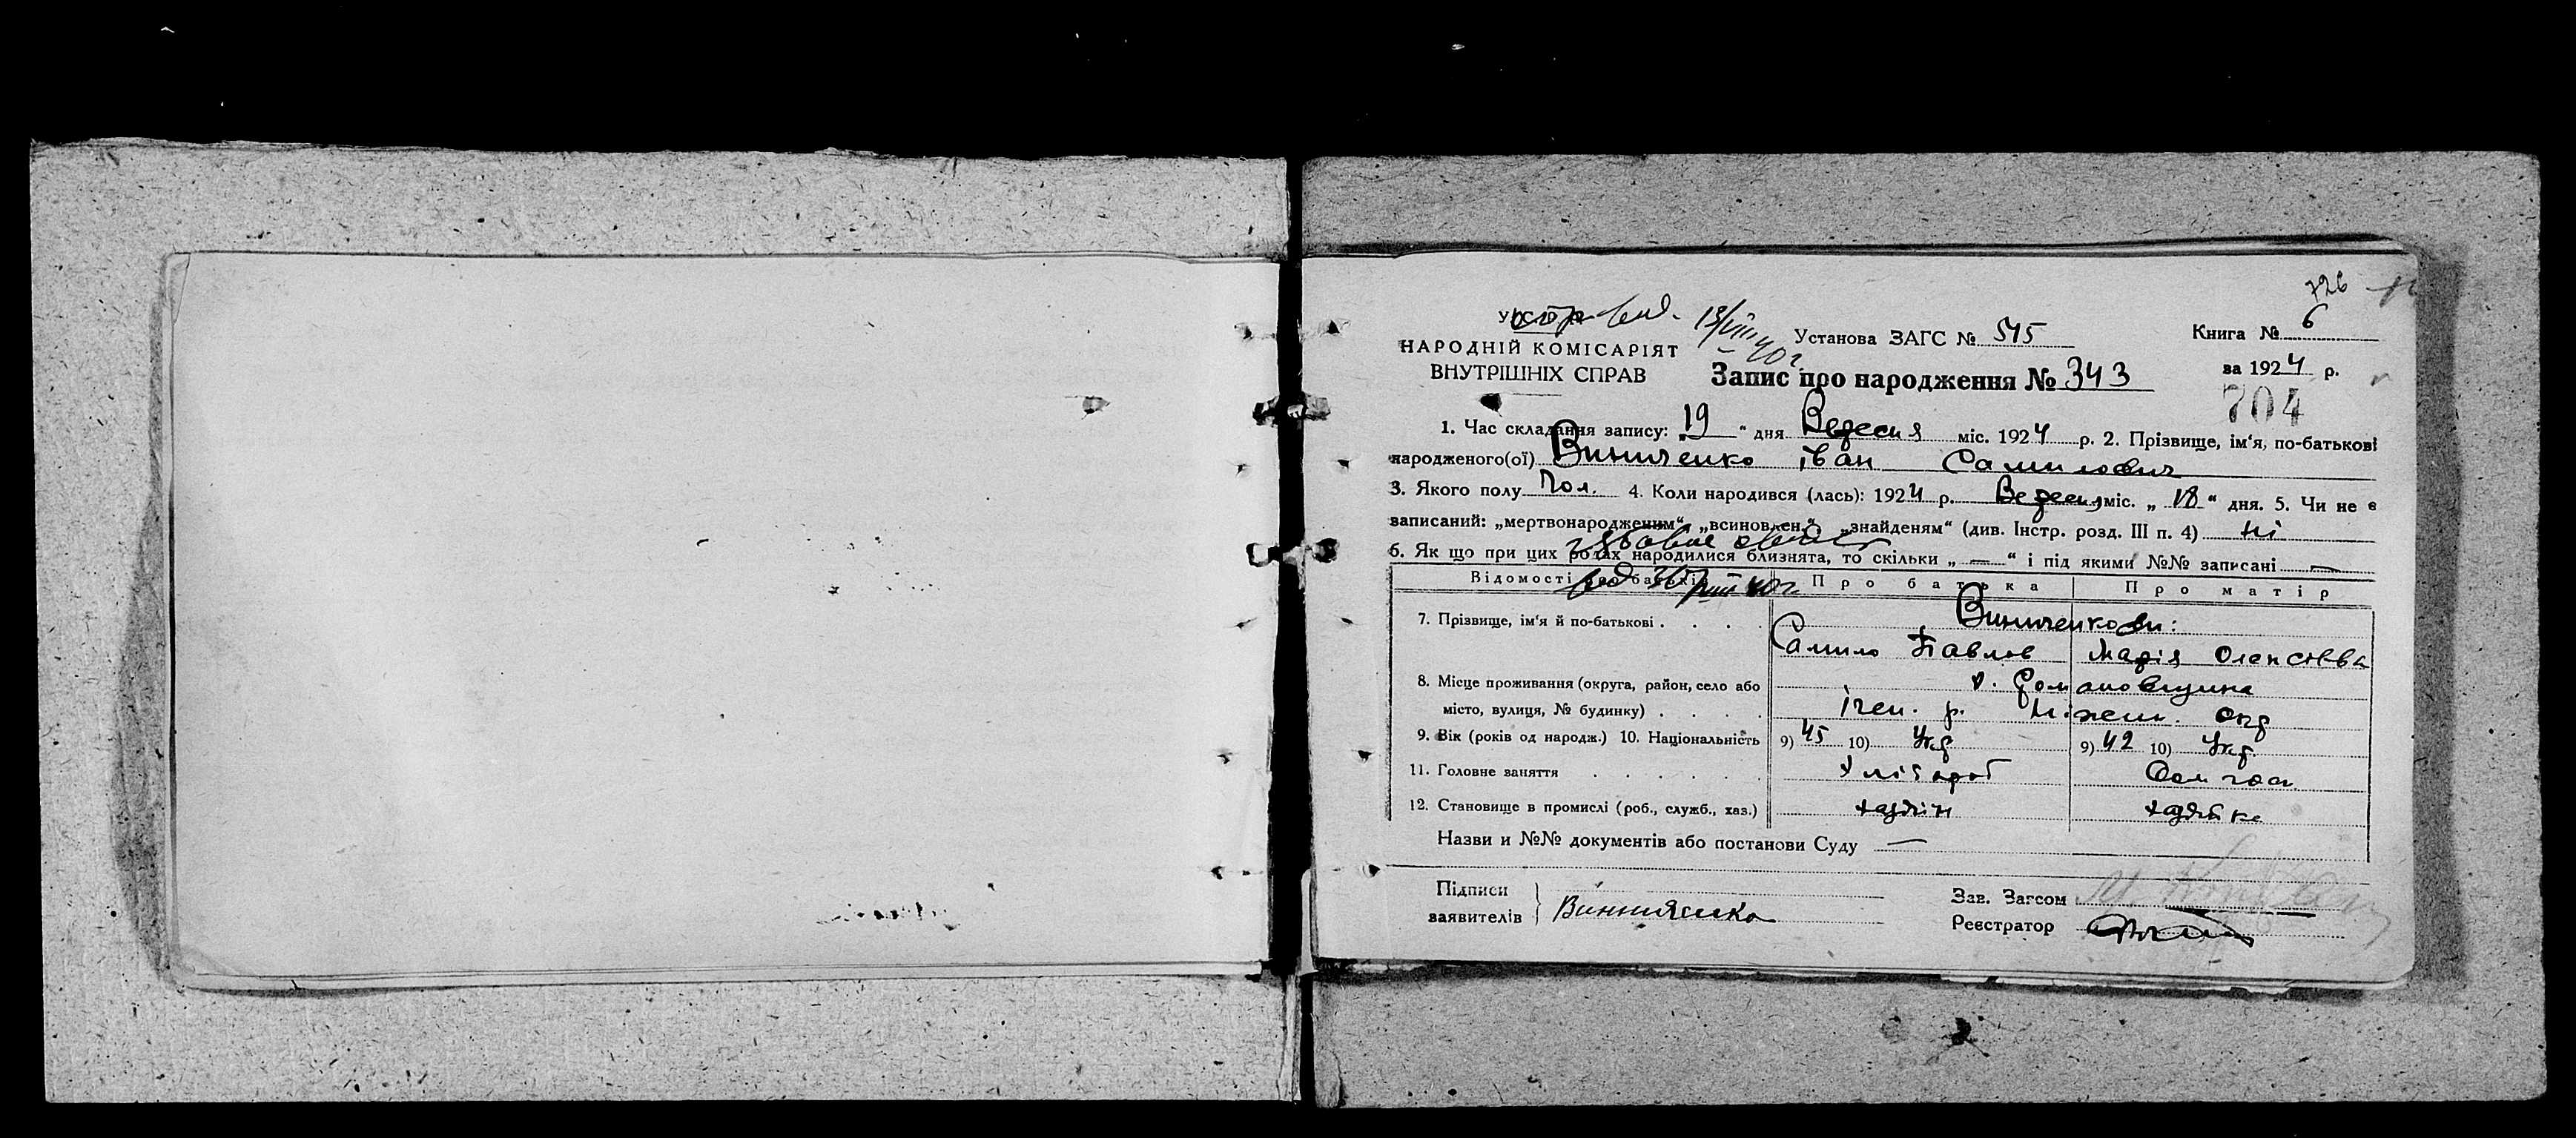 726
У.С.Р.Р.
13/VIII 40 г.
Установа ЗАГС № 545
Книга № 6
НАРОДНІЙ КОМІСАРІЯТ
ВНУТРІШНІХ СПРАВ
Запис про народження № 343
за 1924 р.
704
1. Час складання запису: 19 " дня Вересня міс. 1924 р. 2. Прізвище, ім'я, по-батькові
народженого(ої) Винниченко іван Самилович
3. Якого полу Чол. 4. Коли народився (лась): 1924 р. Вересня міс. „ 18 " дня. 5. Чи не є
записаний: „мертвонародженим", „всиновлен.", „знайденям" (див. Інстр. розд. III п. 4) ні
6. Як що при цих родах народилися близнята, то скільки „ — " і під якими №№ записані —
Відомості про батьків Про батька Про матір
7. Прізвище, ім'я й по-батькові . . . . Винниченкови:
Самило Павлов Марія Олексіївва
8. Місце проживання (округа, район, село або х. Романовщина
місто, вулиця, № будинку) . . . . Ічен. р. Ніжен. Окр
9. Вік (років од народж.) 10. Національність 9) 45 10) Укр 9) 42 10) Укр.
11. Головне заняття . . . . . . Хлібороб Дом госп
12. Становище в промислі (роб., служб., хаз.) хазяїн хазяйка
Назви и №№ документів або постанови Суду —
Підписи
заявителів
Зав. Загсом
Реєстратор